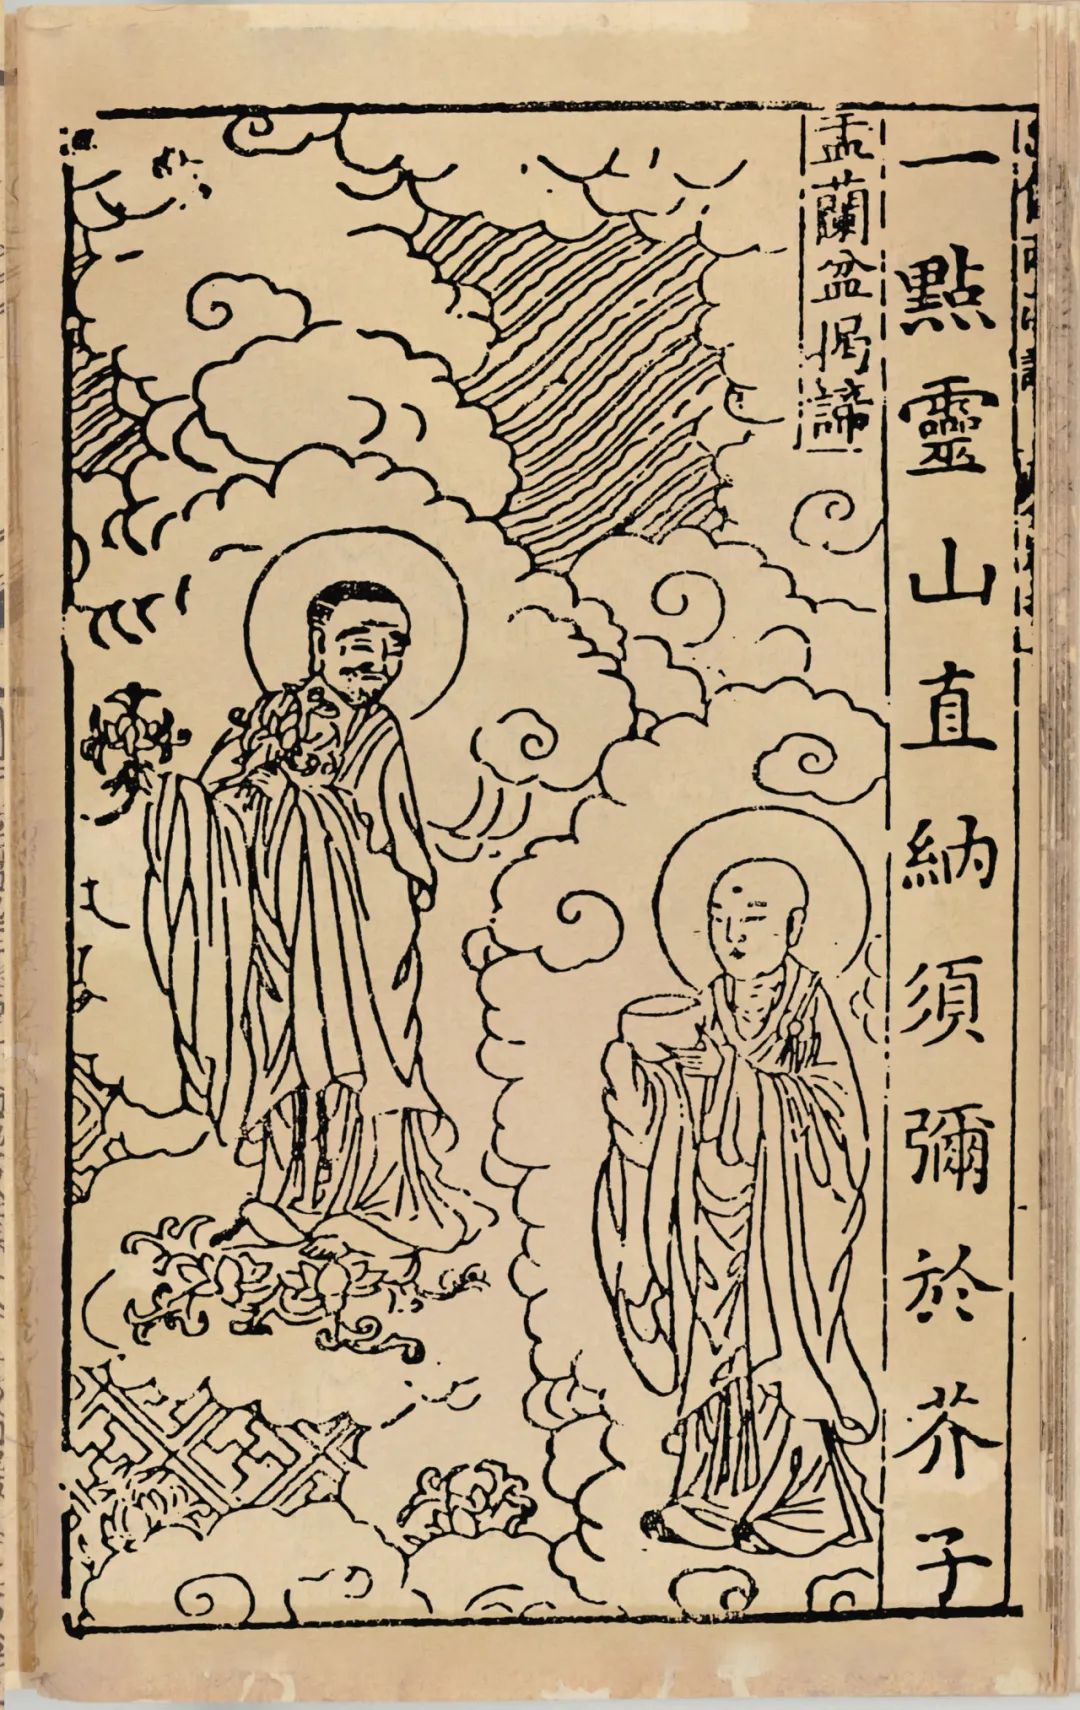 一點靈山直納須彌於芥子
盂蘭盆揭諦